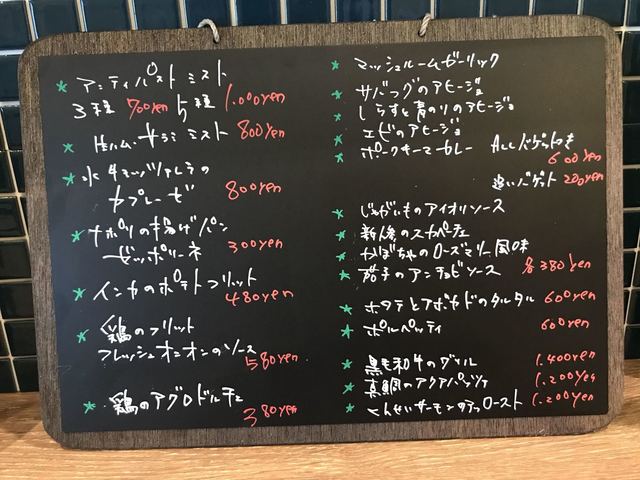 アンティパスト ミスト
3種 700yen 5種 1.000yen
生ハム・サラミ ミスト 800yen
水牛モッツァレラの
カプレーゼ 800yen
ナポリの揚げパン
ゼッポリーネ 300yen
インカのポテトフリット
480yen
鶏のフリット
フレッシュオニオンのソース
580yen
鶏のアグロドルチェ
380yen
マッシュルームガーリック
サバとのアヒージョ
しらすと青のりのアヒージョ
エビのアヒージョ
ポークキーマカレー ALLバゲット付き
600yen
追いバゲット 200yen
じゃがいものアイオリソース
のスカペーチェ
かぼちゃのローズマリー風味
茄子のアンチョビソース 各380yen
ホタテとアボカドのタルタル 600yen
ポルペッティ 600yen
黒毛和牛のグリル 1.400yen
真鯛のアクアパッツァ 1.200yen
くんせいサーモンのロースト 1.200yen